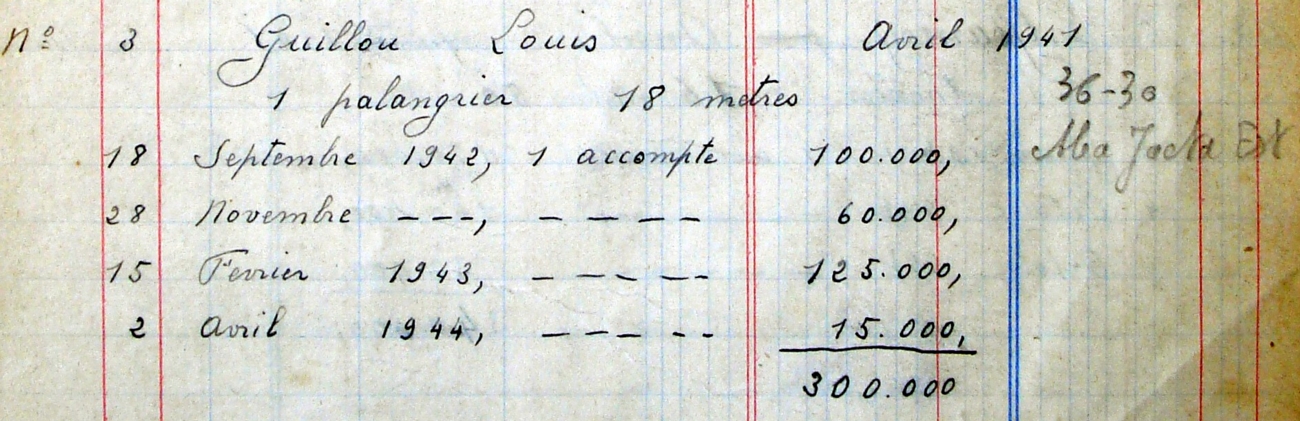 Nº 3 Guillou Louis Avril 1941
1 palangrier 18 metres 36-30
18 Septembre 1942, 1 accompte 100.000, Alea Jacta Est
28 Novembre ---, - - - - 60.000,
15 Fevrier 1943, - - - - - 125.000,
2 Avril 1944, - - - - - 15.000,
300.000